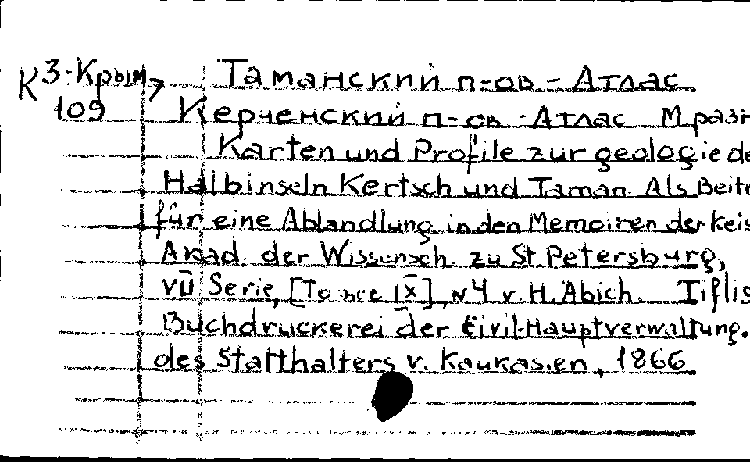 К 3-Крым, Таманский п-ов - Атлас
109 Керченский п-ов - Атлас М разн
Karten und Profile zur geologie de
Halbinseln Kertsch und Taman. Als Beitr
für eine Ablandlung in den Memoiren der keis
Akad. der Wissensch. zu St. Petersburg,
VII Serie, [Tomee IX], N4 v. H. Abich. Tiflis
Buchdruckerei der Civil-Hauptverwaltung.
des Statthalters v. Kaukasien, 1866